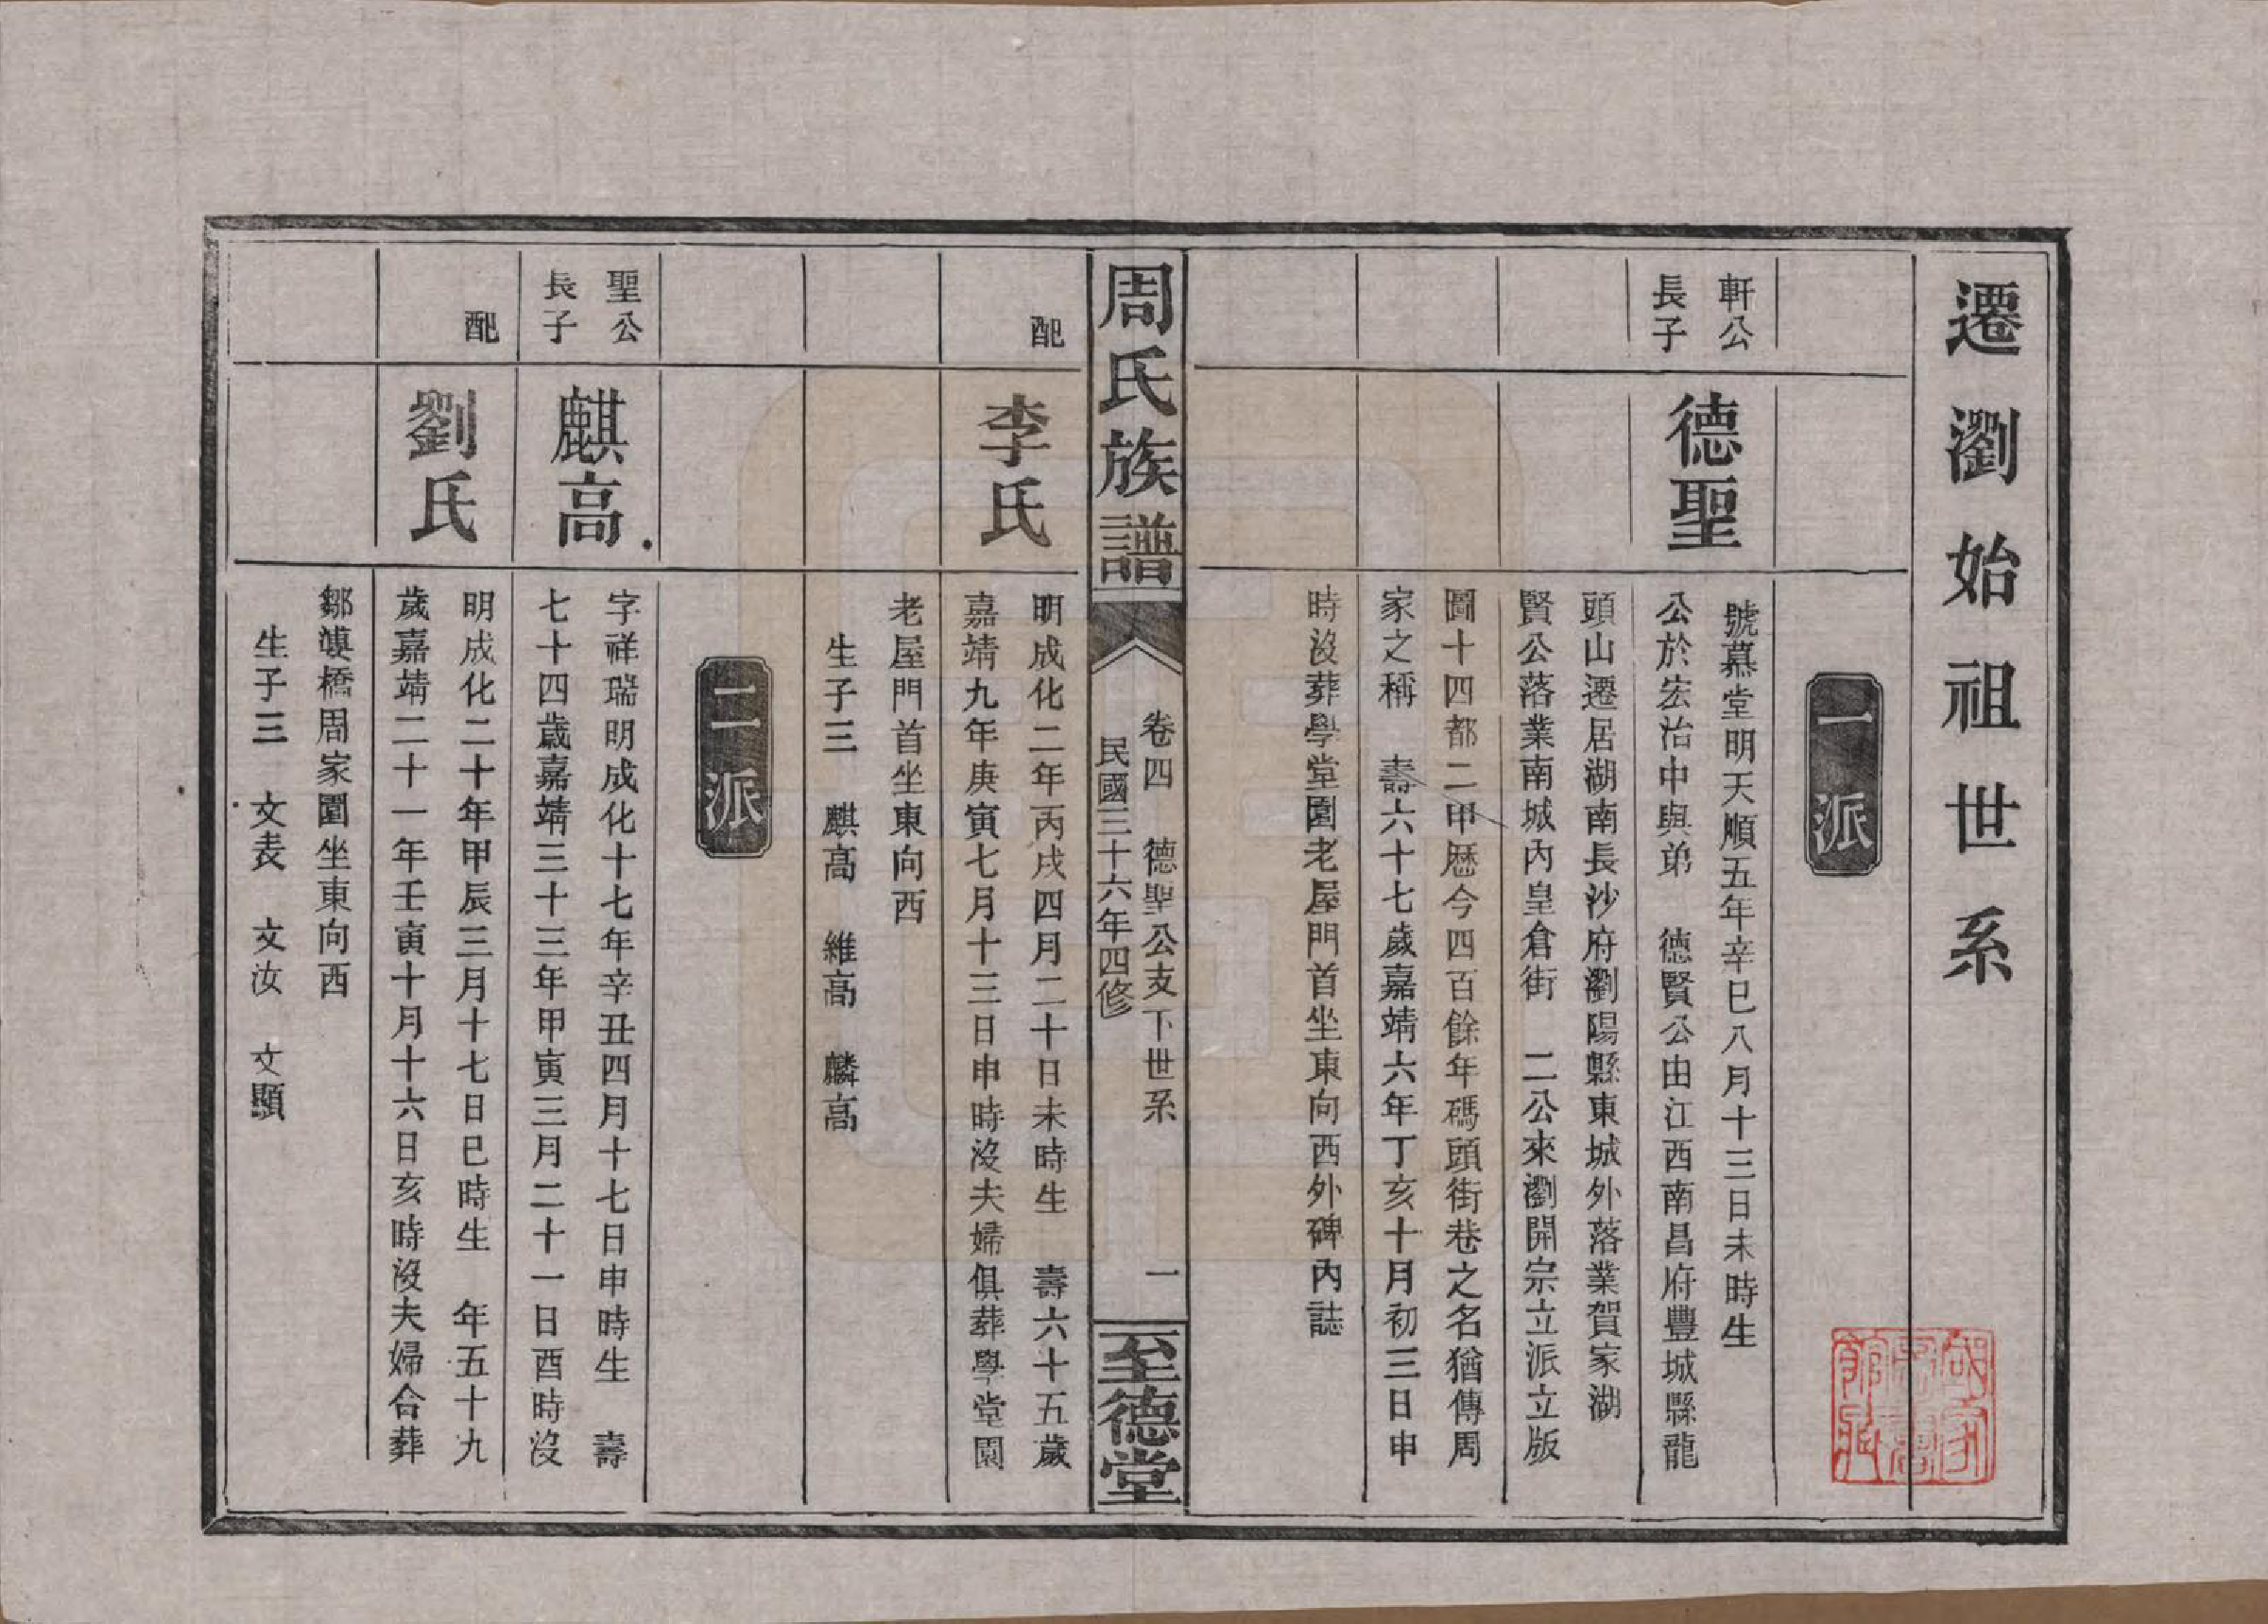 遷瀏始祖世系
一派
軒公
長子
德聖
號慕堂明天順五年辛巳八月十三日未時生
公於宏治中與弟　德賢公由江西南昌府豐城縣龍
頭山遷居湖南長沙府瀏陽縣東城外落業賀家湖
賢公落業南城內皇倉街　二公來瀏開宗立派立版
圖十四都二甲歷今四百餘年碼頭街巷之名猶傳周
家之稱　壽六十七歲嘉靖六年丁亥十月初三日申
時沒葬學堂園老屋門首坐東向西外碑內誌
周氏族譜
卷四　德聖公支下世系　一
民國三十六年四修
至德堂
配
李氏
明成化二年丙戌四月二十日未時生　壽六十五歲
嘉靖九年庚寅七月十三日申時沒夫婦俱葬學堂園
老屋門首坐東向西
生子三　麒高　維高　麟高
二派
聖公
長子
麒高
字祥瑞明成化十七年辛丑四月十七日申時生　壽
七十四歲嘉靖三十三年甲寅三月二十一日酉時沒
配
劉氏
明成化二十年甲辰三月十七日巳時生　年五十九
歲嘉靖二十一年壬寅十月十六日亥時沒夫婦合葬
鄒塽橋周家園坐東向西
生子三　文表　文汝　文顯